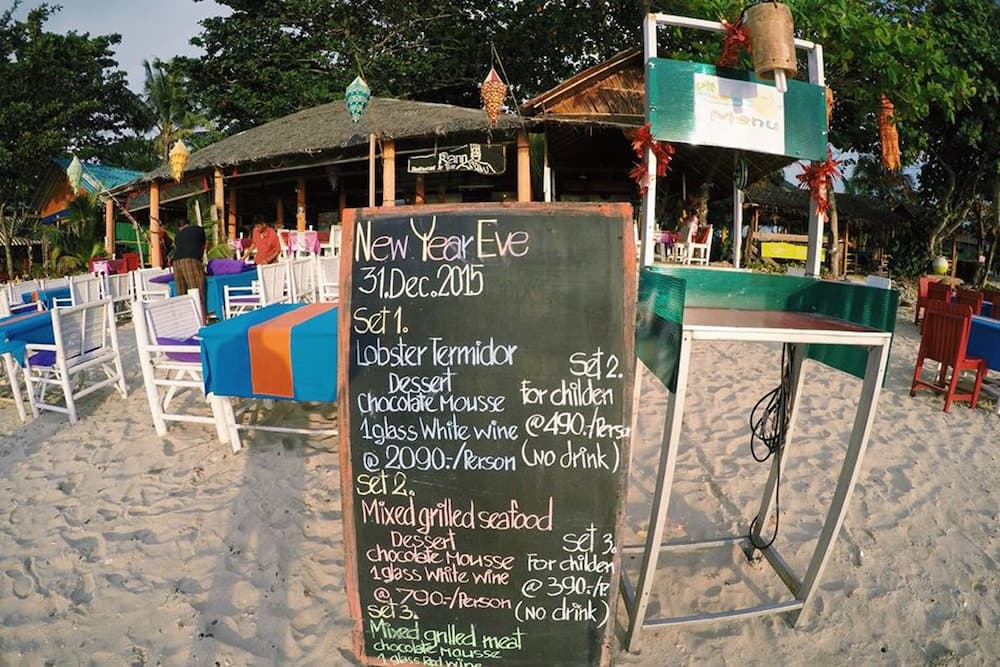 Menu
New Year Eve
31.Dec.2015
Set 1.
Lobster Termidor
Dessert
Chocolate Mousse
1 glass White wine
@ 2090.-/Person
Set 2.
For childen
@490.-/Person
(no drink)
Set 2.
Mixed grilled seafood
Dessert
chocolate Mousse
1 glass White wine
@ 790.-/Person
Set 3.
For childen
@ 390.-/P
(no drink)
Set 3.
Mixed grilled meat
chocolate Mousse
1 glass Red wine